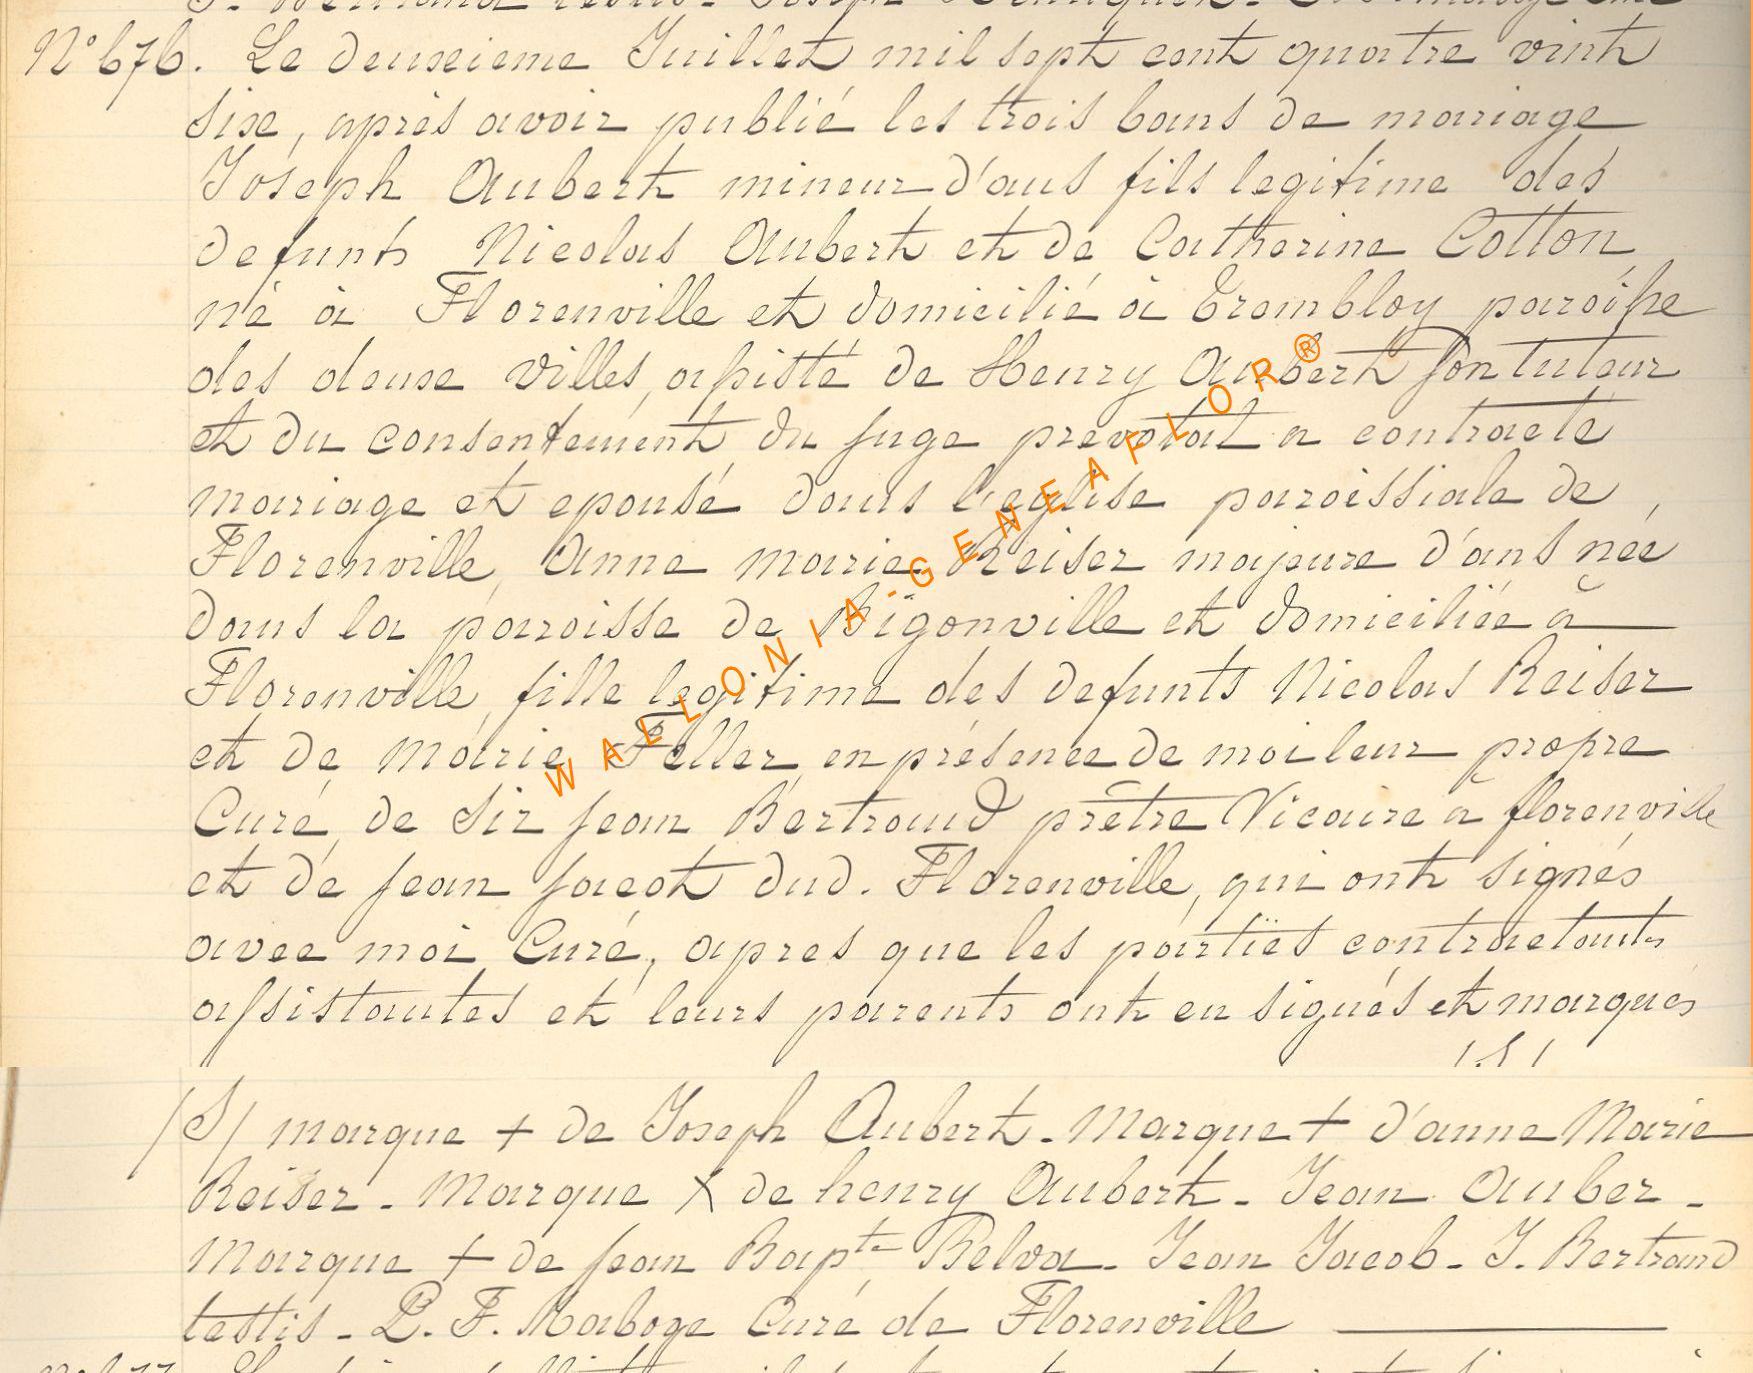 N° 676. Le deuxieme Juillet mil sept cent quatre vint
six, après avoir publié les trois bans de mariage
Joseph Aubert mineur d'ans fils legitime des
defunts Nicolas Aubert et de Catherine Cotton
né à Florenville et domicilié à Trembloy paroisse
des deux villes, assisté de Henry Aubert son tuteur
et du consentement du juge prevotal a contracté
mariage et epousé dans l'eglise paroissiale de
Florenville, Anne Marie Reiser majeure d'ans née
dans la paroisse de Bigonville et domiciliée à
Florenville, fille legitime des defunts Nicolas Reiser
et de Marie Feller, en présence de moi leur propre
Curé, de Sir Jean Bertrand prêtre Vicaire à florenville
et de Jean Jacot dud. Florenville, qui ont signés
avec moi Curé, apres que les partïes contractantes
assistantes et leurs parents ont eu signés et marqués
/S/
/S/ marque + de Joseph Aubert - Marque + d'anne Marie
Reiser - Marque X de henry Aubert - Jean Auber -
Marque + de Jean Bapte Belva - Jean Jacob - J. Bertrand
testis - P. F. Maboge Curé de Florenville
WALLONIA-GENEAFLOR®